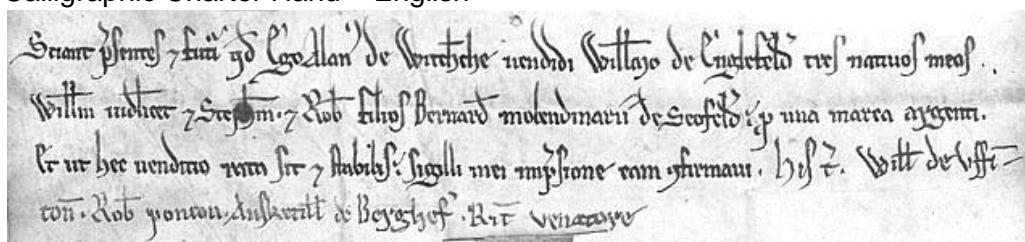 Calligraphic Charter Hand – English
Sciant p̄sentes ⁊ futuͥ qd̄ Ego Alan' de Witcħche uendidi Willm̄o de Englefeld̄ tres natiuos meos.
Willm̄ uidlicet ⁊ Stepħm. ⁊ Rob̄ filios Bernard̄ molendinarii de Scofeld̄: ꝑ una marca argenti.
Et ut hec uenditio rata sit ⁊ stabilis: sigilli mei imp̄sione eam ꝯfirmaui. His t̄. Witt de Vffin
ton̄. Rob̄ ponton. Ansketill de Bergħes. Ric̄ venatore